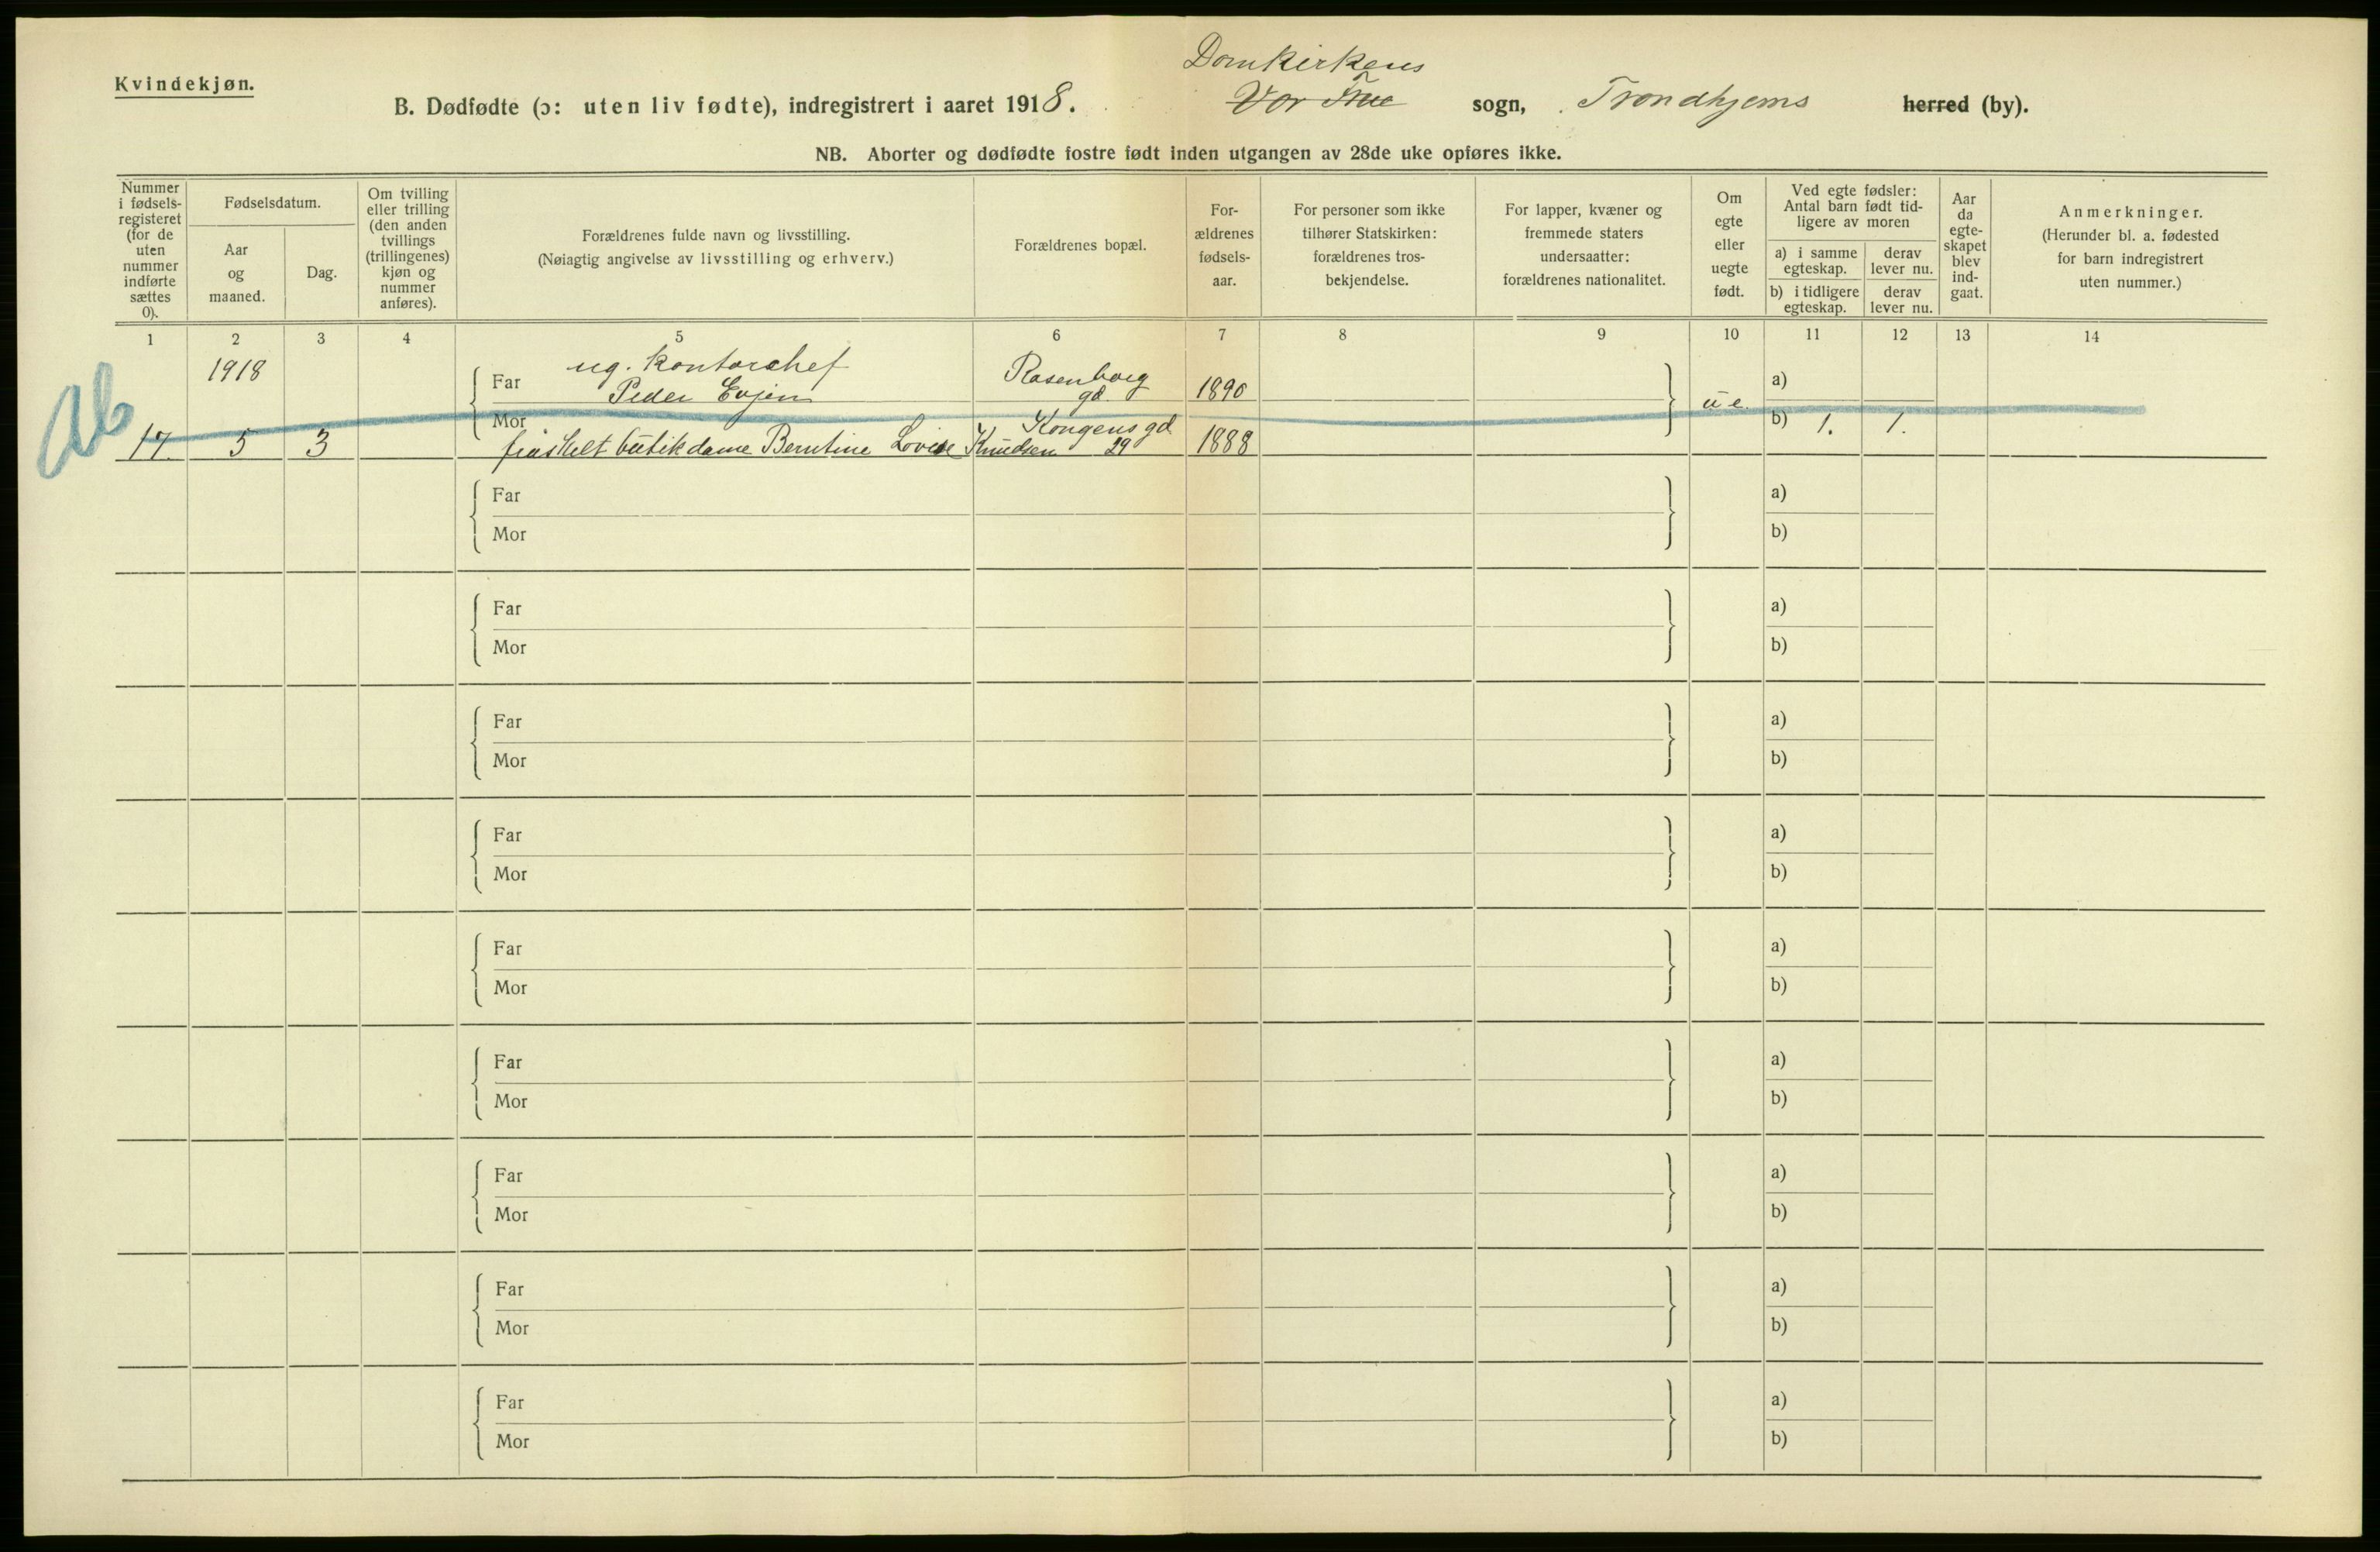 Kvindekjøn.
Domkirkens
B. Dødfødte (ɔ: uten liv fødte), indregistrert i aaret 1918. Vor Frue sogn, Trondhjems herred (by).
NB. Aborter og dødfødte fostre født inden utgangen av 28de uke opføres ikke.
Nummer
i fødsels-
registeret
(for de
uten
nummer
indførte
sættes
0).
Fødselsdatum.
Aar
og
maaned.
Dag.
Om tvilling
eller trilling
(den anden
tvillings
(trillingenes)
kjøn og
nummer
anføres).
Forældrenes fulde navn og livsstilling.
(Nøiagtig angivelse av livsstilling og erhverv.)
Forældrenes bopæl.
For-
ældrenes
fødsels-
aar.
For personer som ikke
tilhører Statskirken:
forældrenes tros-
bekjendelse.
For lapper, kvæner og
fremmede staters
undersaatter:
forældrenes nationalitet.
Om
egte
eller
uegte
født.
Ved egte fødsler:
Antal barn født tid-
ligere av moren
a) i samme
egteskap.
derav
lever nu.
b) i tidligere
egteskap.
derav
lever nu.
Aar
da
egte-
skapet
blev
ind-
gaat.
Anmerkninger.
(Herunder bl. a. fødested
for barn indregistrert
uten nummer.)
1 2 3 4 5 6 7 8 9 10 11 12 13 14
1918 ug. kontorchef Rosenborg
Far Peder Evjen gd. 1890 a)
ue.
Ab
Mor Kongens gd. b) 1. 1.
17. 5 3 fraskilt butikdame Berntine Lovise Knudsen 29 1888
Far a)
Mor b)
Far a)
Mor b)
Far a)
Mor b)
Far a)
Mor b)
Far a)
Mor b)
Far a)
Mor b)
Far a)
Mor b)
Far a)
Mor b)
Far a)
Mor b)